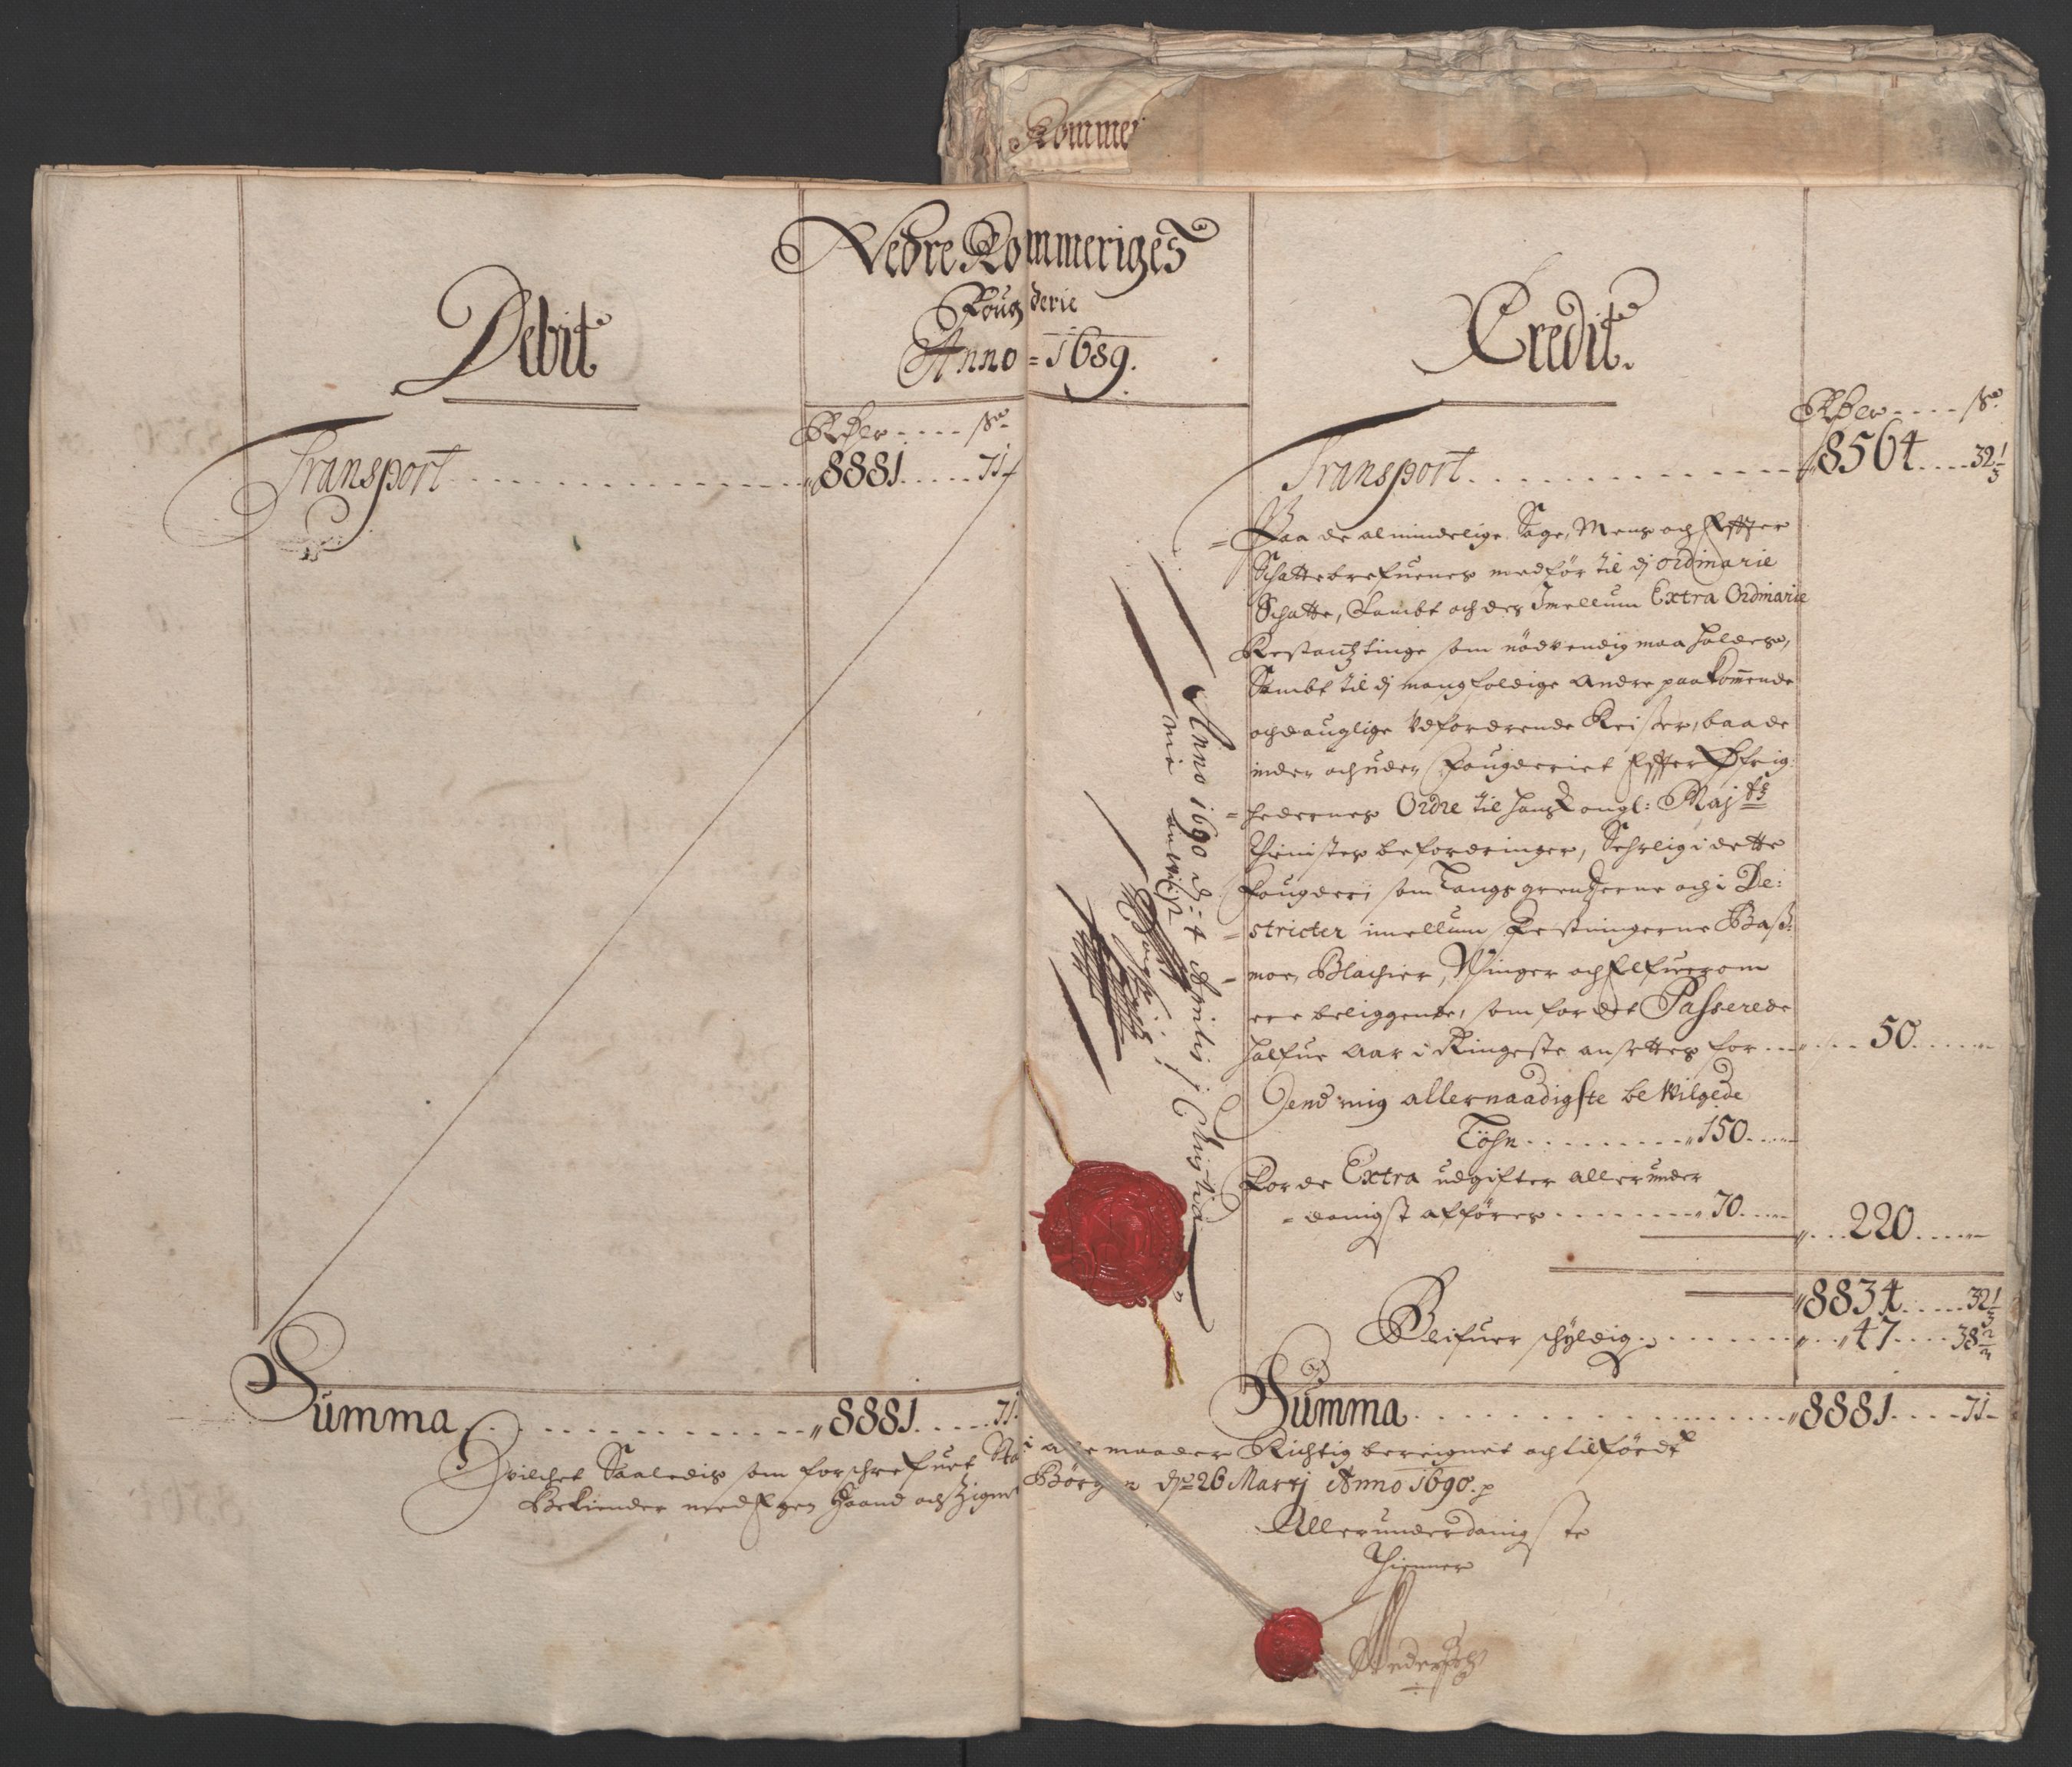 Rommer
Nedre Rommeriges
Fougderie
Anno = 1689.
Debit
Rdler .... ß
Transport .... 8881 .... 71
Summa .... 8881 .... 71.
Credit.
Rdler .... ß
Transport .... 8564 .... 32 1/3
Paa de almindelige Sage, Mens och Effter
Schattebrefuenes medför til dj ordinarie
Schatte, Sambt och des Imellum Extra Ordinarie
Restantz tinge som nödvendig maa holdes,
Sambt til dj mangfoldige andre paakommende
och dauglige udfordrende Reiser, baade
inden och uden Fougderiet Effter Öfrig:
=hedernes Ordre til hans Kongl: Maj.ts
Thienistes befordringer, Sehrlig i dette
Fougderi som langs grentzerne och i De:
=stricter imellum Festningerne Bass:
=moe, Blachier, Winger och Elfuerom
ere beliggende, som for det Passerede
halfue Aar i Ringeste ansettes for .... 50 ....
Dend mig allernaadigste bewilgede
Löhn .... 150 ....
For de Extra udgifter allerunder
=danigst afföres .... 70 .... 220 ....
8834 .... 32 1/3
Blifuer schyldig .... 47 .... 38 2/3
Summa .... 8881 .... 71
Hvilchet Saaledis som forschrefuet Sta i alle maader Richtig beregnet och tilföedt
Bekiender med Egen Haand och Zignet Börgen d. 26 Martj Anno 1690.
Allerunderdanigste
Thienner
Anno 1690 d: 4 Aprilis j Christia